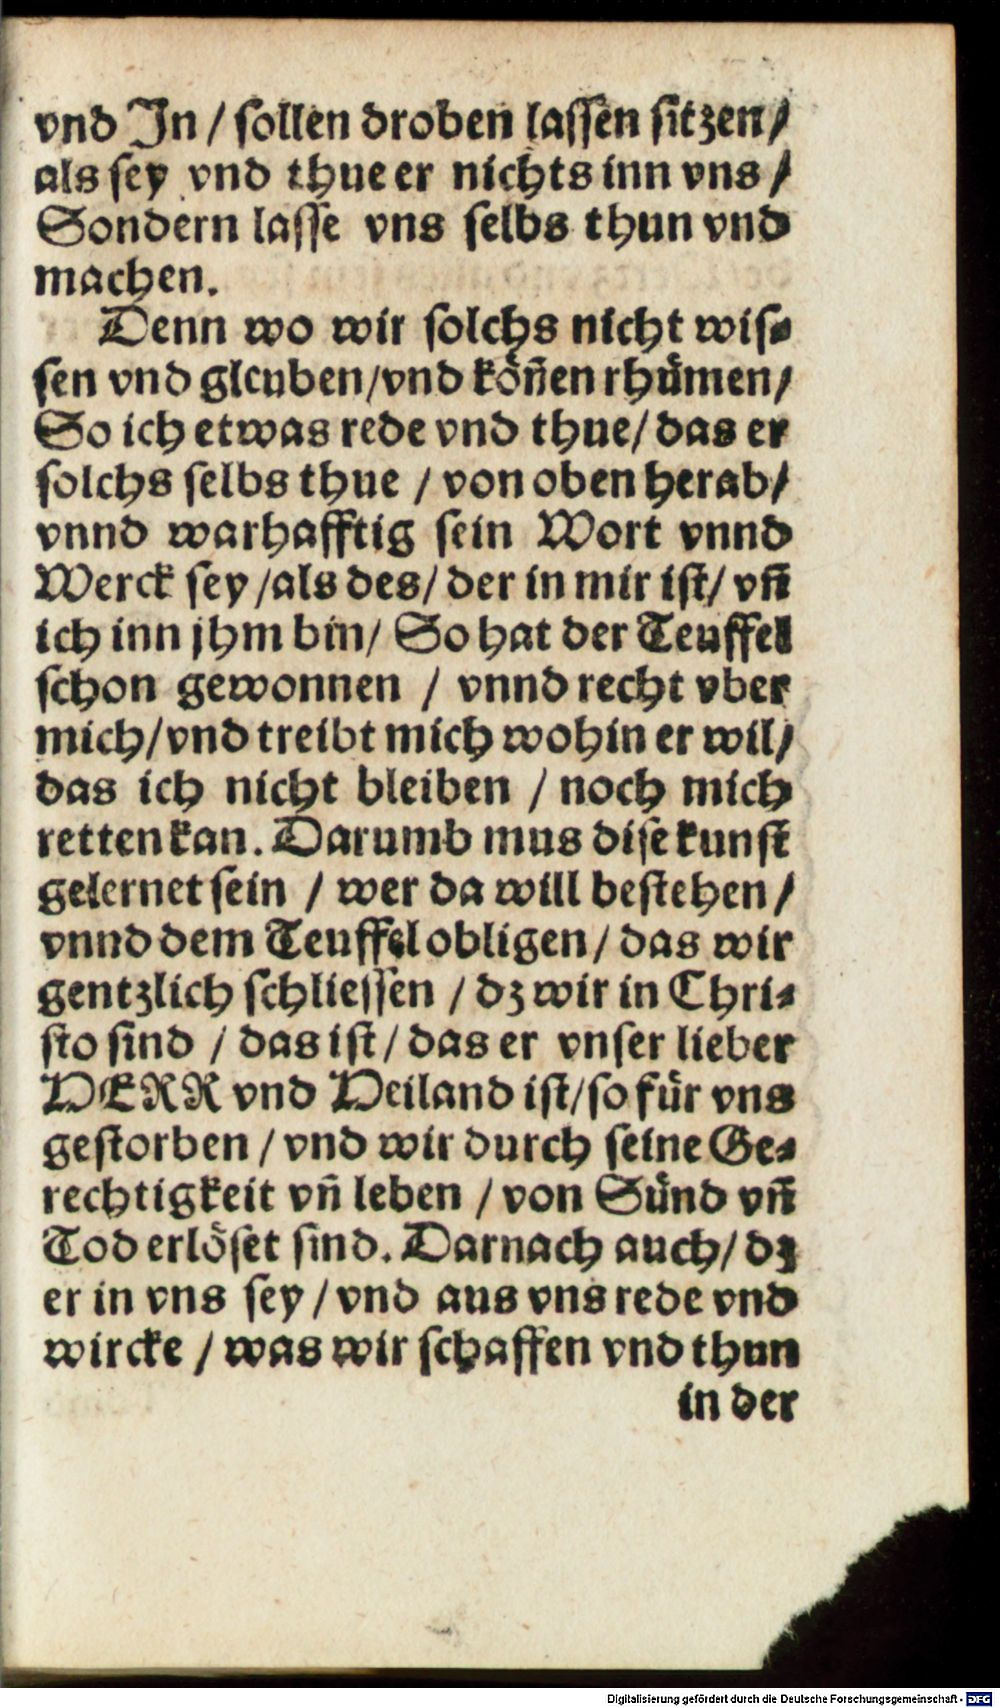 vnd In / sollen droben lassen sitzen /
als sey vnd thue er nichts inn vns /
Sondern lasse vns selbs thun vnd
machen.
Denn wo wir solchs nicht wis⸗
sen vnd gleuben/vnd köñen rhümen/
So ich etwas rede vnd thue/ das er
solchs selbs thue / von oben herab/
vnnd warhafftig sein Wort vnnd
Werck sey /als des/ der in mir ist/ vñ
ich inn jhm bin/ So hat der Teuffel
schon gewonnen / vnnd recht vber
mich/vnd treibt mich wohin er wil/
das ich nicht bleiben / noch mich
retten kan. Darumb mus dise kunst
gelernet sein / wer da will bestehen /
vnnd dem Teuffel obligen / das wir
gentzlich schliessen / dz wir in Chri⸗
sto sind / das ist / das er vnser lieber
HERR vnd Heiland ist/so für vns
gestorben / vnd wir durch seine Ge⸗
rechtigkeit vñ leben / von Sünd vñ
Tod erlöset sind. Darnach auch/ dz
er in vns sey / vnd aus vns rede vnd
wircke / was wir schaffen vnd thun
in der
Digitalisierung gefördert durch die Deutsche Forschungsgemeinschaft - DFG